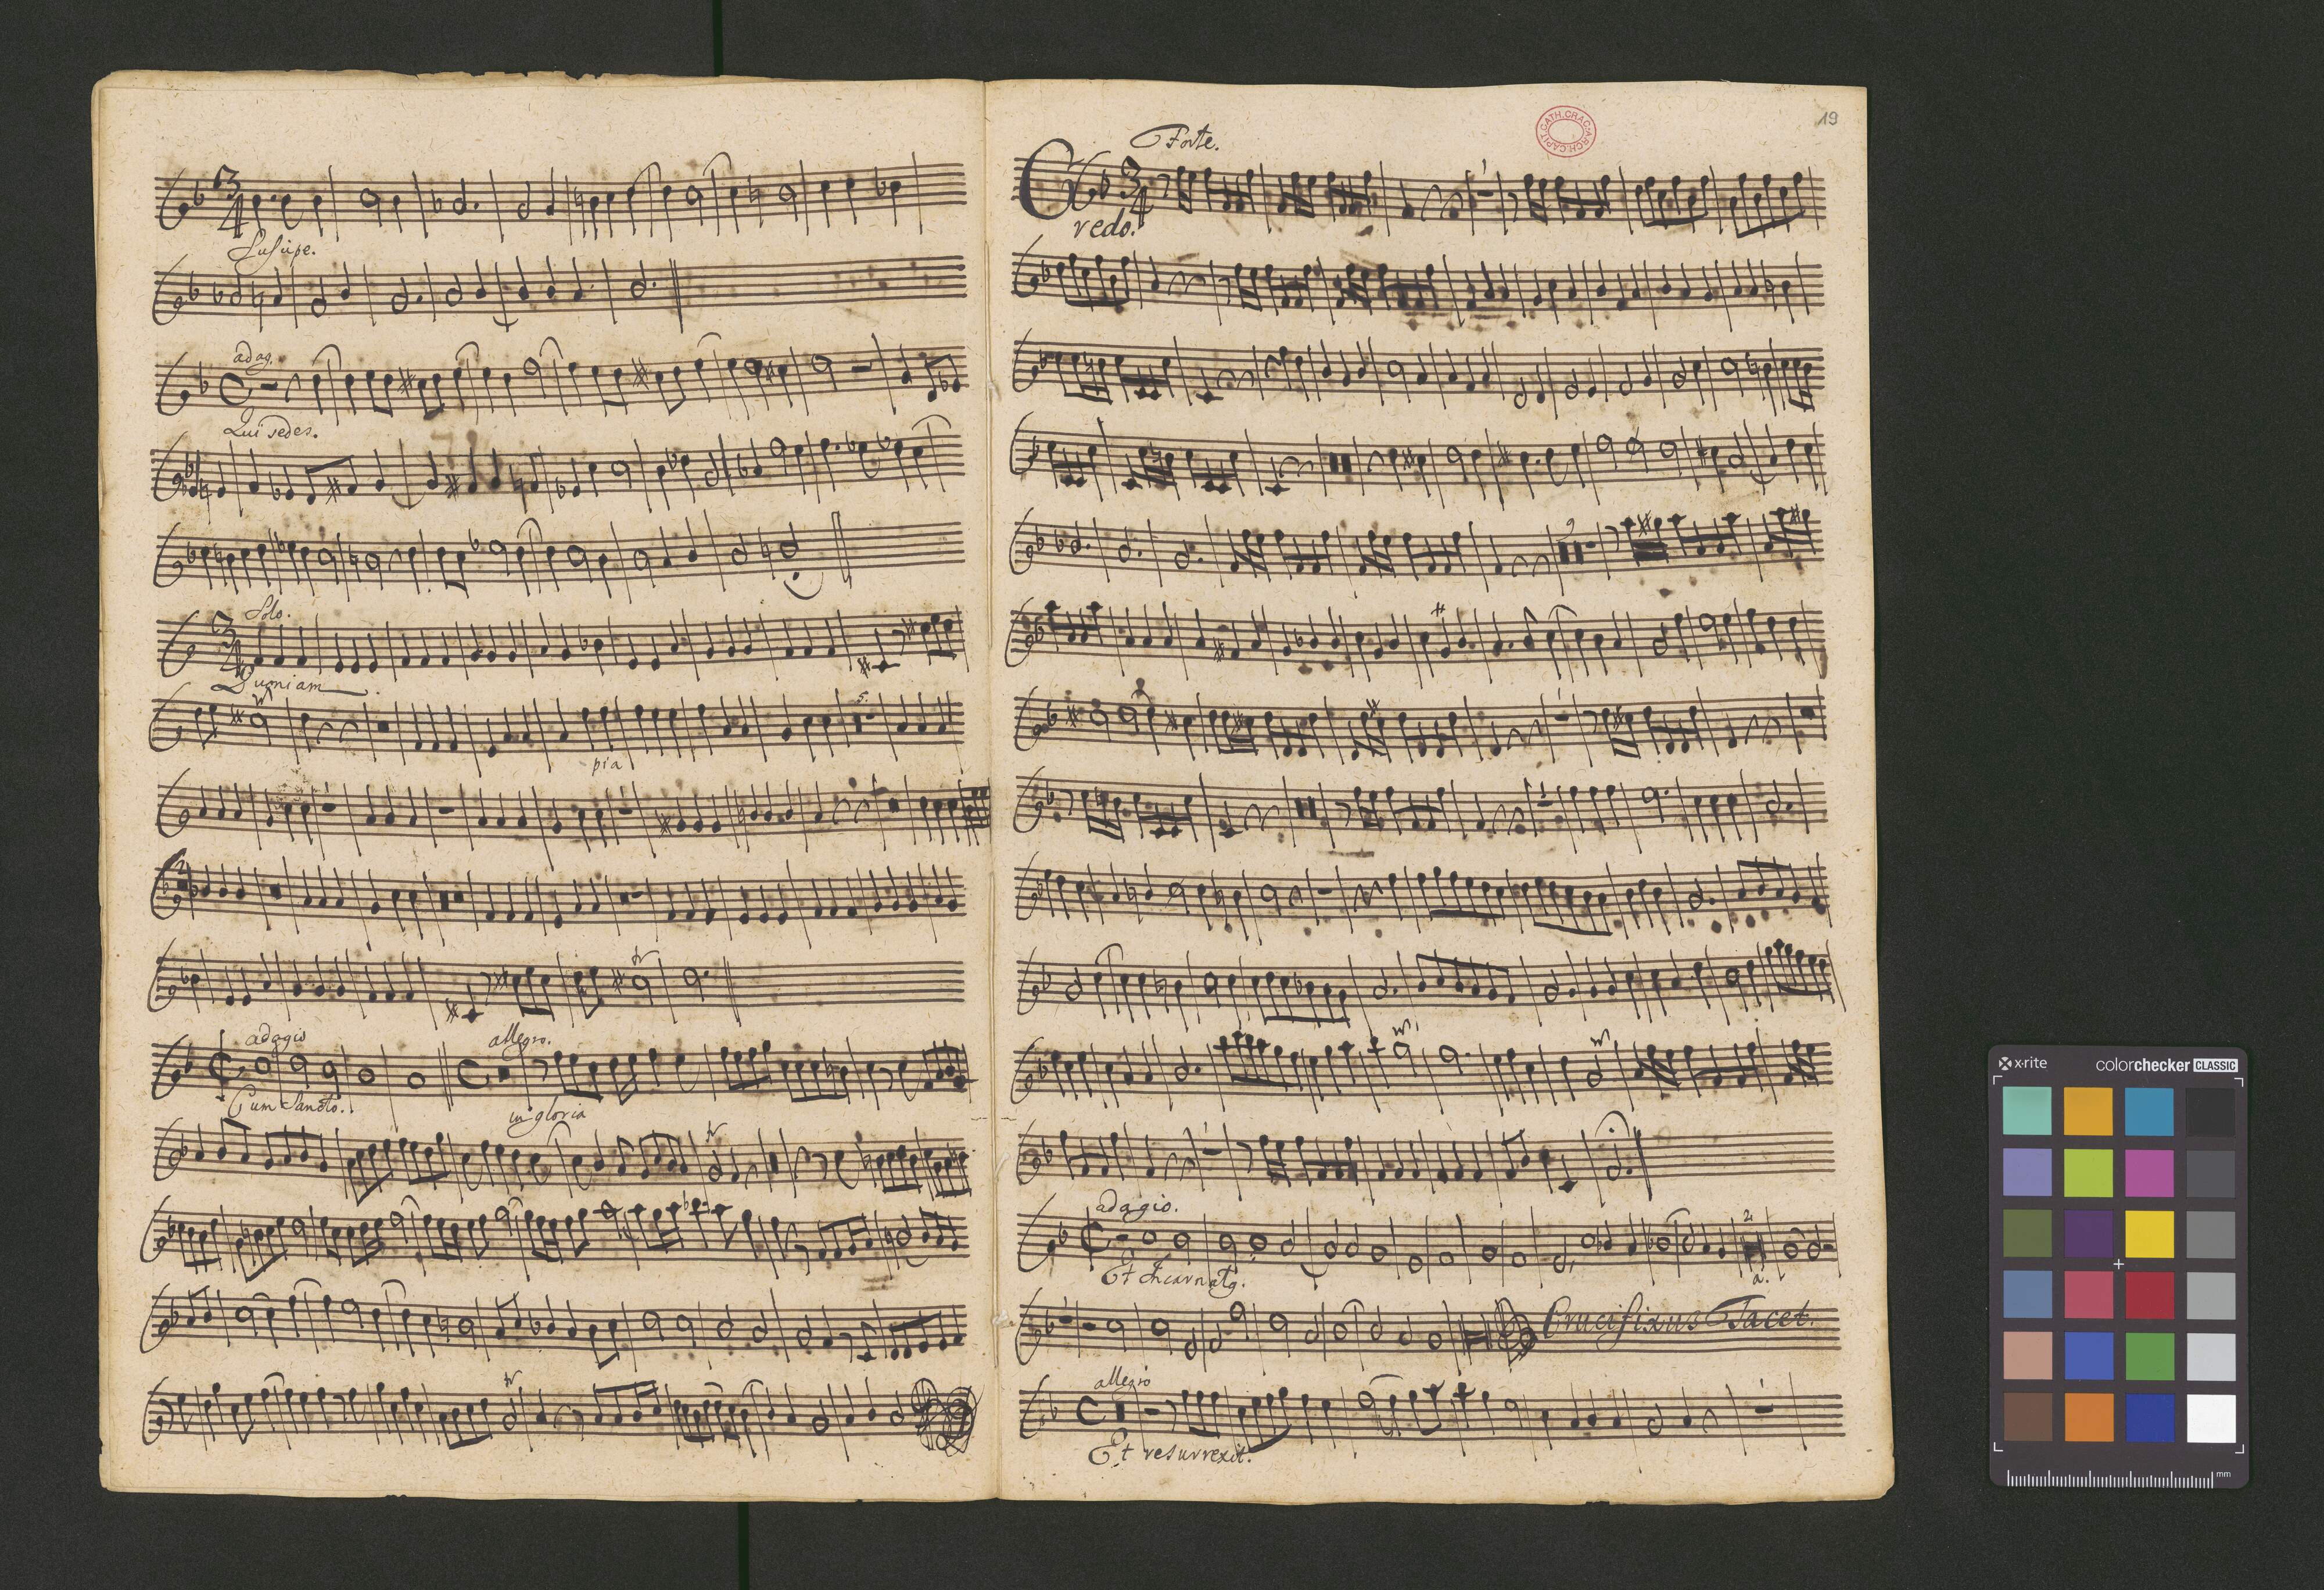 Susipe.
adag.
Qui sedes.
Solo.
Quoniam
pia
5.
2
adagio
allegro.
Cum Sancto.
in gloria
19
Forte.
ARCH. CAPIT. CATH. CRAC.
Credo.
2
adagio.
Et Incarnatg.
2.
a.
Crucifixus Tacet.
allegro
Et resurrexit.
x-rite
colorchecker CLASSIC
mm